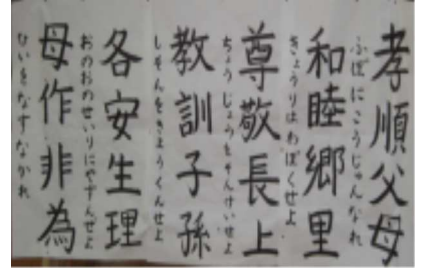 孝順父母
ふぼにこうじゅんなれ
和睦郷里
きょうりはわぼくせよ
尊敬長上
ちょうじょうをそんけいせよ
教訓子孫
しそんをきょうくんせよ
各安生理
おのおのせいりにやすんぜよ
母作非為
ひいをなすなかれ